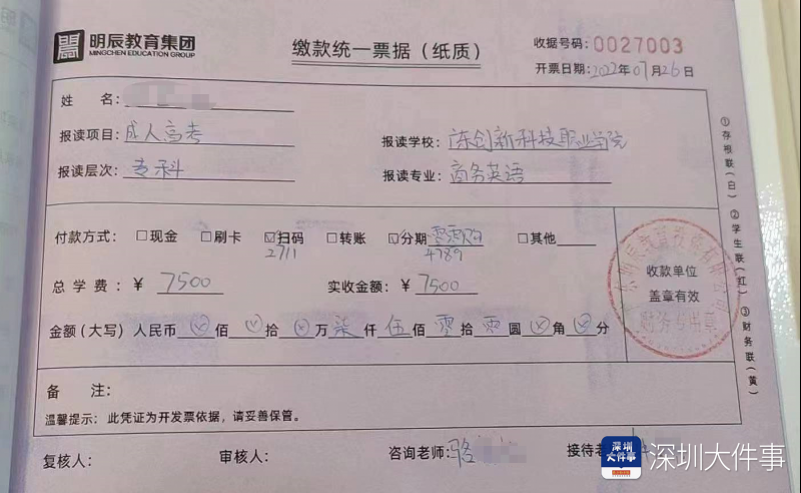 明辰教育集团
MINGCHEN EDUCATION GROUP
缴款统一票据（纸质）
收据号码：0027003
开票日期：2022年07月26日
姓 名：
报读项目：成人高考
报读学校：广东创新科技职业学院
报读层次：专科
报读专业：商务英语
付款方式： □现金 □刷卡 ☑扫码 □转账 ☑分期 □其他
2711 4789
总 学 费：￥ 7500 实收金额：￥ 7500
金额（大写）人民币 ⓧ 佰 ⓧ 拾 ⓧ 万 柒 仟 伍 佰 零 拾 零 圆 ⓧ 角 ⓧ 分
收款单位
盖章有效
财务专用章
备 注：
温馨提示：此凭证为开发票依据，请妥善保管。
复核人： 审核人： 咨询老师：骆 接待老
①存根联（白） ②学生联（红） ③财务联（黄）
深圳
大件事
深圳大件事